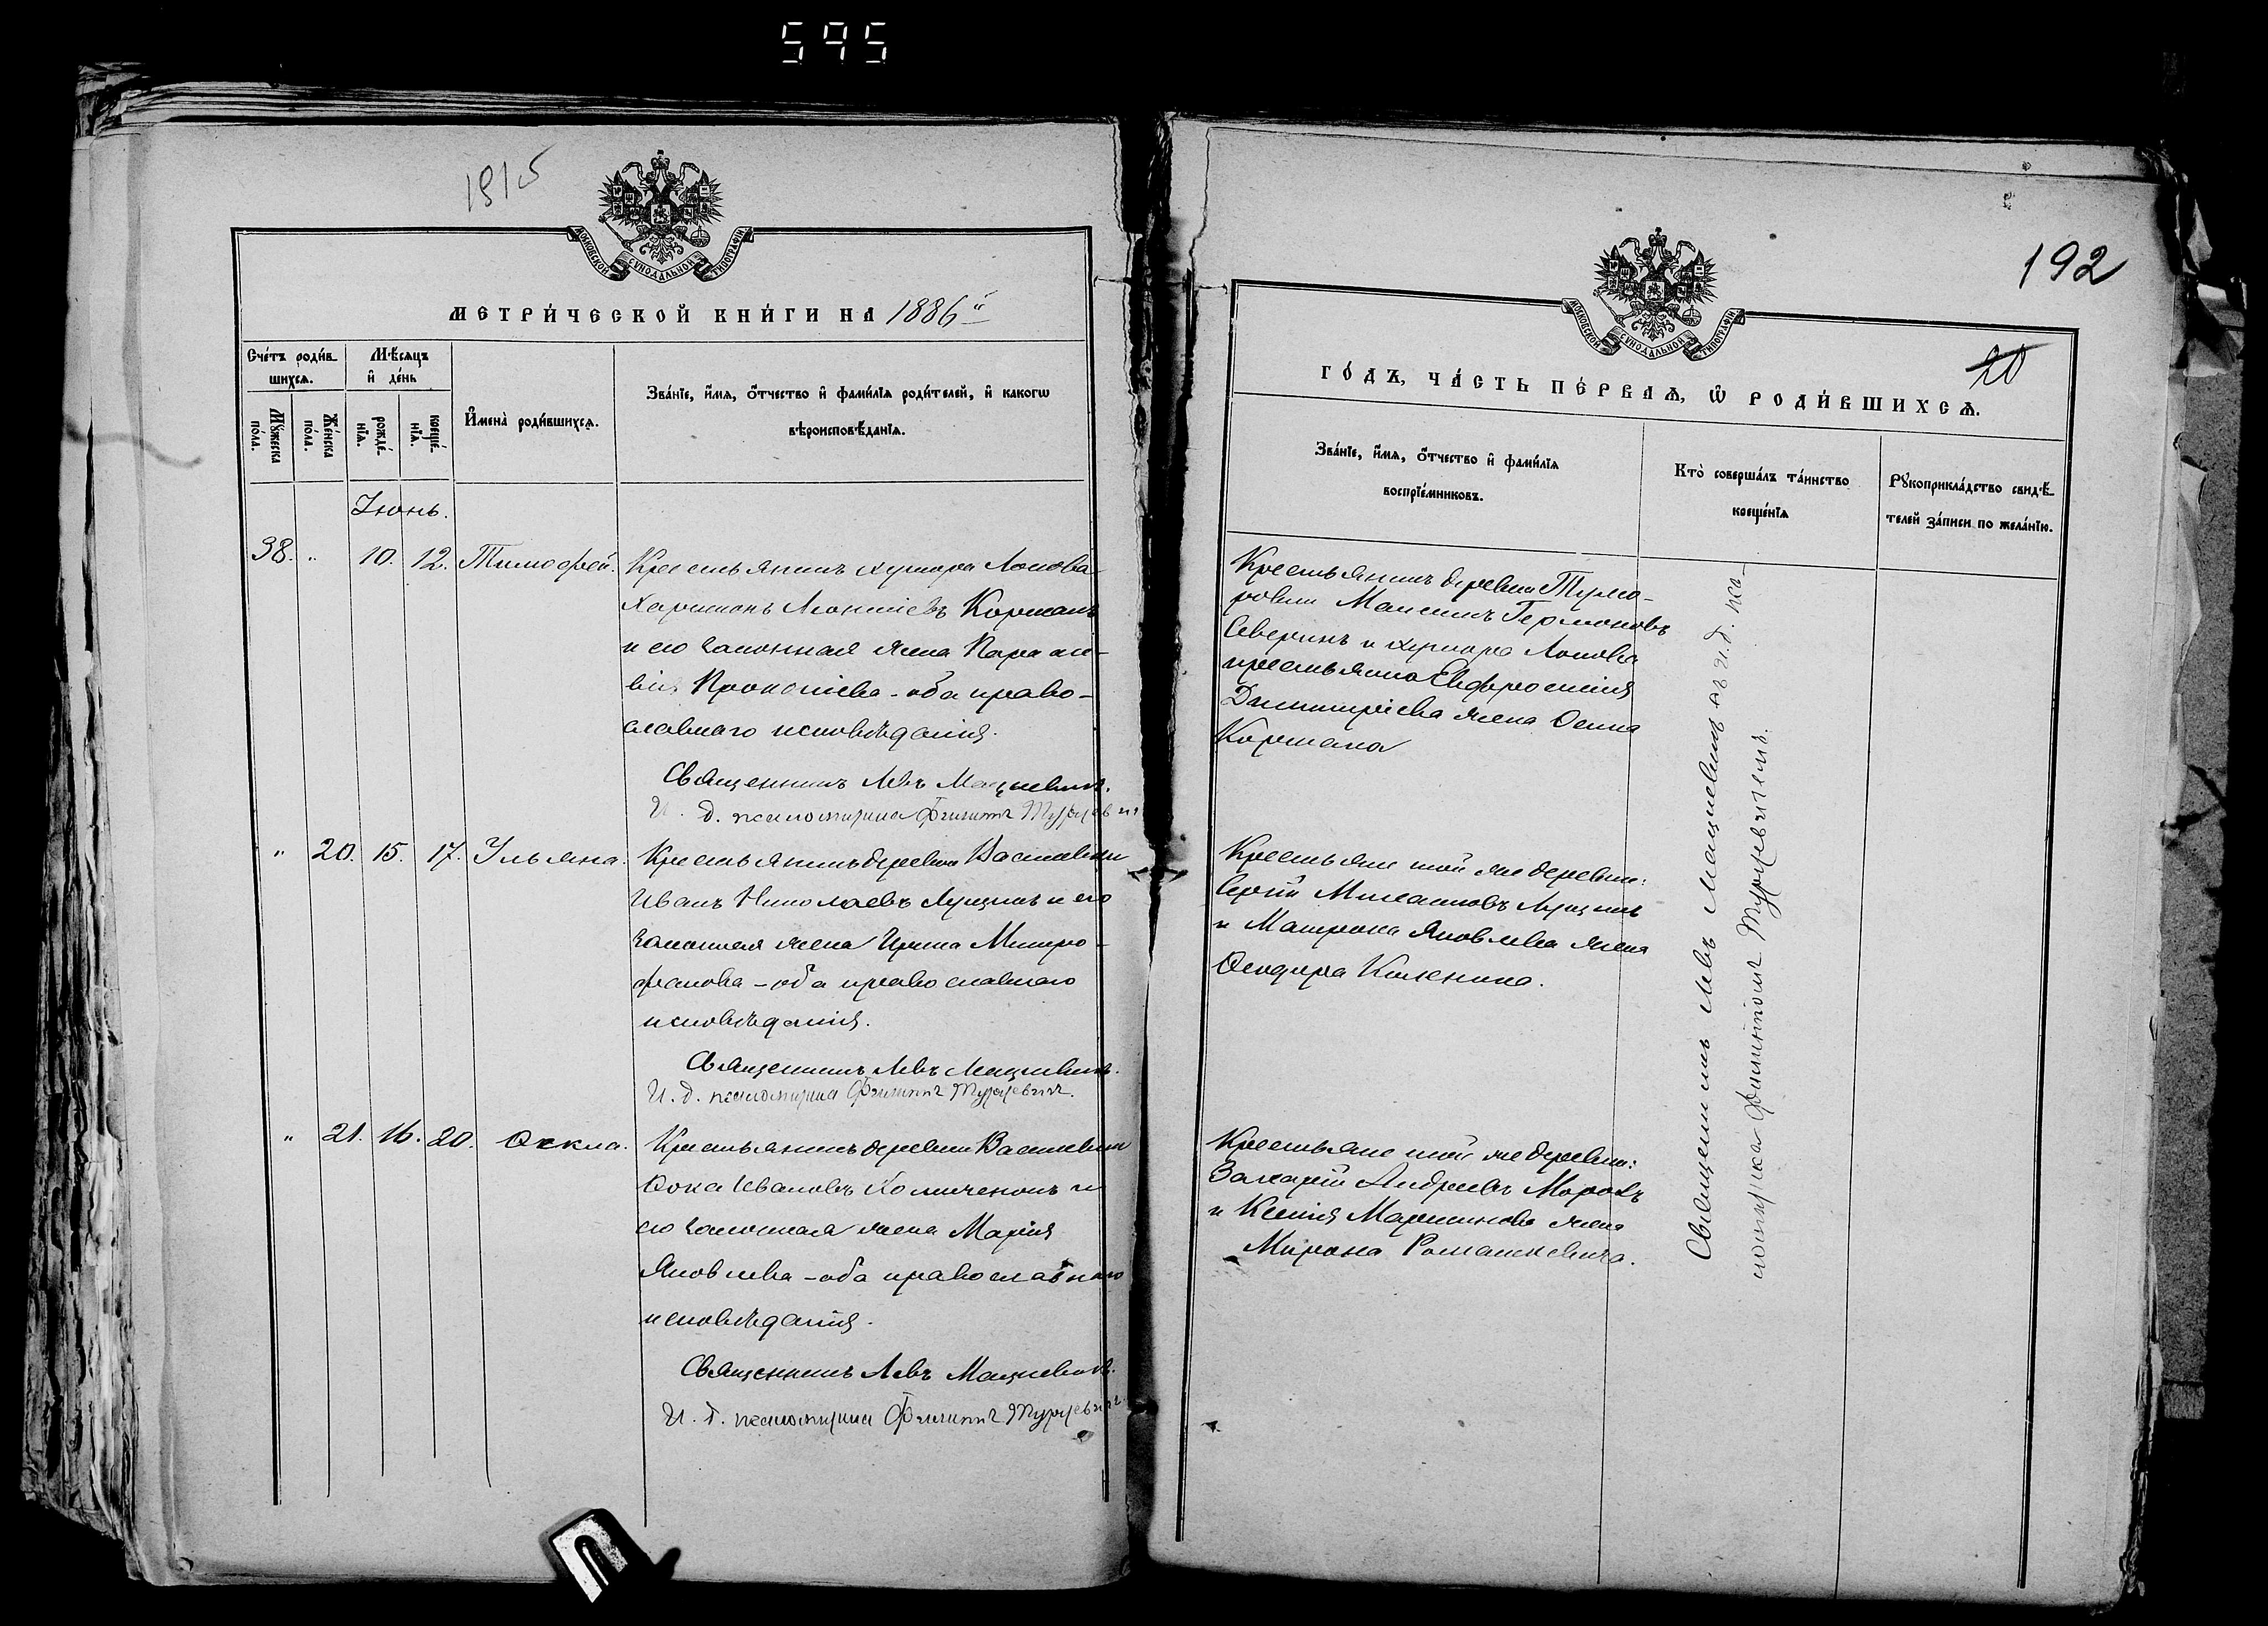 595
1915
МОСКОВСКОЙ СУНОДАЛЬНОЙ ТИПОГРАФІИ
МЕТРИ́ЧЕСКОЙ КНИ́ГИ НА 1886й
Сче́тъ роди́в-
шихсѧ.
Мѣ́сѧцъ
и҆ де́нь
Мꙋ́жеска
по́ла.
Же́нска
по́ла.
рожде́-
нїѧ.
креще́-
нїѧ.
И҆мена̀ роди́вшихсѧ.
Зва́нїе, и҆́мѧ, ѻ҆́тчество и҆ фами́лїѧ роди́телей, и҆ какогѡ
вѣроисповѣ́данїѧ.
Іюнь.
38. " 10. 12. Тимофей. Крестьянинъ хутора Лопова
Харитонъ Леонтіевъ Коршакъ
и его законная жена Параске-
вія Прокопіева - оба право-
славнаго исповѣданія.
Священникъ Левъ Мацкевичъ.
И. д. псаломщика Филиппъ Турцевичъ
" 20. 15. 17. Ульяна. Крестьянинъ деревни Васшевки
Иванъ Николаевъ Лущикъ и его
законная жена Ирина Митро-
фанова - оба православнаго
исповѣданія.
Священникъ Левъ Мацкевичъ.
И. д. псаломщика Филиппъ Турцевичъ.
" 21. 16. 20. Ѳекла. Крестьянинъ деревни
Ѳока Ивановъ и
его законная жена Марія
Яковлева - оба православнаго
исповѣданія.
Священникъ Левъ Мацкевичъ.
И. д. псаломщика Филиппъ Турцевичъ.
192
20
МОСКОВСКОЙ СУНОДАЛЬНОЙ ТИПОГРАФІИ
ГО́ДЪ, ЧА́СТЬ ПЕ́РВАѦ, Ѡ҆ РОДИ́ВШИХСѦ.
Зва́нїе, и҆́мѧ, ѻ҆́тчество и҆ фами́лїѧ
воспрїе́мниковъ.
Кто̀ соверша́лъ та́инство
креще́нїѧ
Рꙋкоприкла́дство свидѣ́-
телей за́писи по жела́нїю.
Крестьянинъ деревни
Северинъ и хутора Лопова
крестьянка Евфросинія
Димитріева жена Осипа
Коршака
Крестьяне той же деревни:
Сергій Лущикъ
и Матрона Яковлева жена
Ѳеодора Каленика.
Крестьяне той же деревни:
Захарій Андреевъ Морозъ
и Ксенія Мартинова жена
Мирона Романкевича.
Священникъ Левъ Мацкевичъ съ и. д. пса-
ломщика Филиппомъ Турцевичемъ.